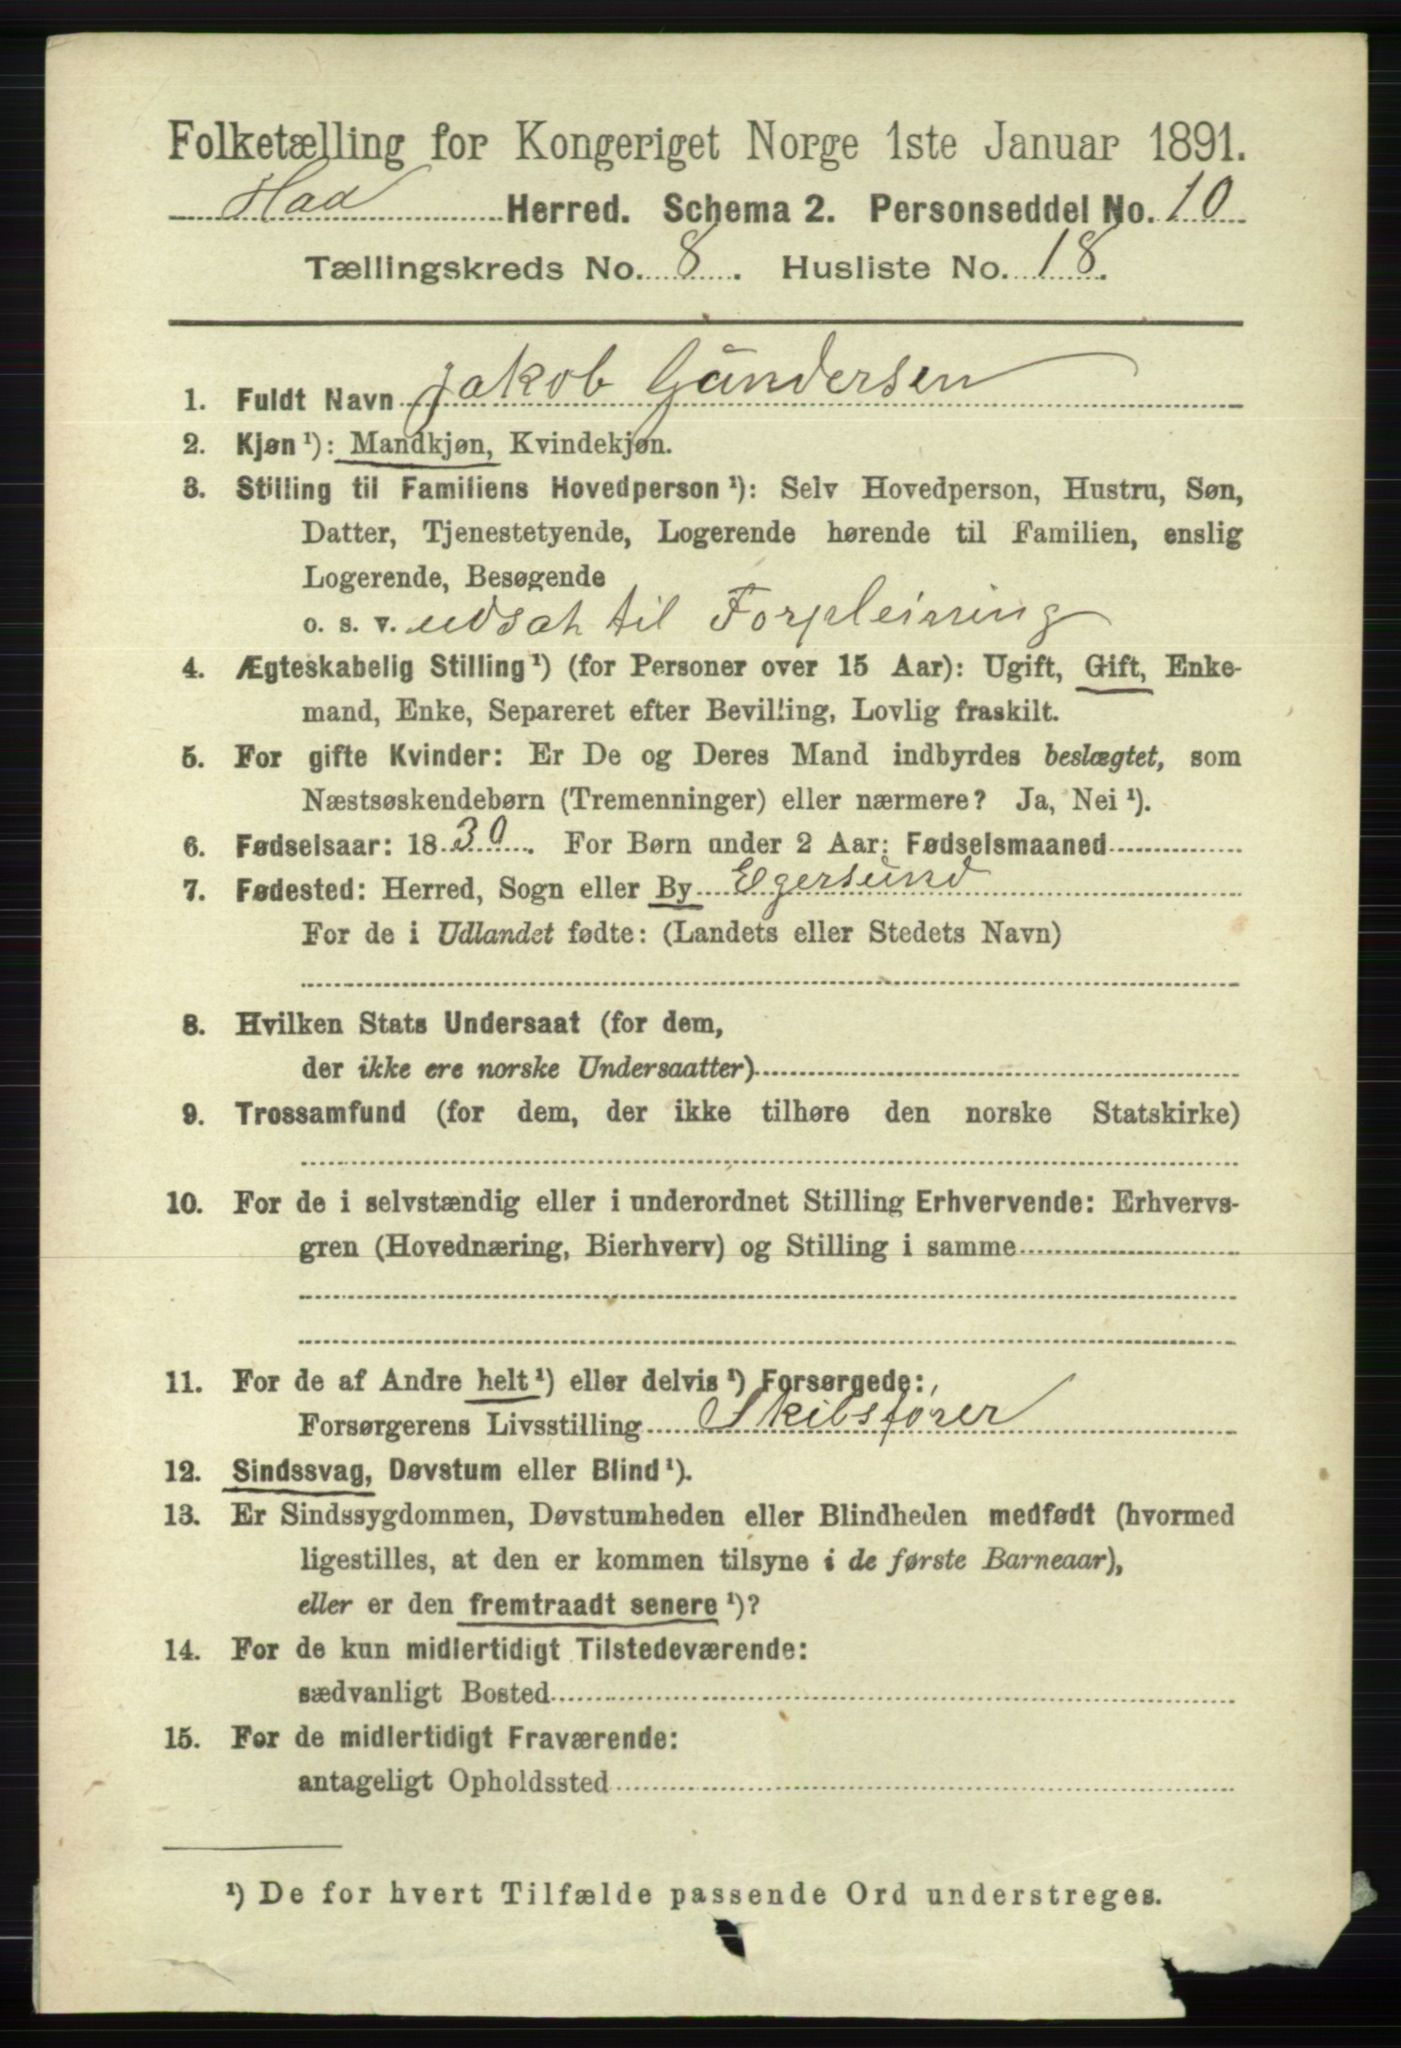 Folketælling for Kongeriget Norge 1ste Januar 1891.
Haa Herred. Schema 2. Personseddel No. 10
Tællingskreds No. 8. Husliste No. 18.
1. Fuldt Navn Jakob Gundersen
2. Kjøn ¹): Mandkjøn, Kvindekjøn.
3. Stilling til Familiens Hovedperson ¹): Selv Hovedperson, Hustru, Søn,
Datter, Tjenestetyende, Logerende hørende til Familien, enslig
Logerende, Besøgende
o. s. v. udsat til Forpleining
4. Ægteskabelig Stilling ¹) (for Personer over 15 Aar): Ugift, Gift, Enke-
mand, Enke, Separeret efter Bevilling, Lovlig fraskilt.
5. For gifte Kvinder: Er De og Deres Mand indbyrdes beslægtet, som
Næstsøskendebørn (Tremenninger) eller nærmere? Ja, Nei ¹).
6. Fødselsaar: 1830. For Børn under 2 Aar: Fødselsmaaned
7. Fødested: Herred, Sogn eller By Egersund
For de i Udlandet fødte: (Landets eller Stedets Navn)
8. Hvilken Stats Undersaat (for dem,
der ikke ere norske Undersaatter)
9. Trossamfund (for dem, der ikke tilhøre den norske Statskirke)
10. For de i selvstændig eller i underordnet Stilling Erhvervende: Erhvervs-
gren (Hovednæring, Bierhverv) og Stilling i samme
11. For de af Andre helt ¹) eller delvis ¹) Forsørgede:
Forsørgerens Livsstilling Skibsfører
12. Sindssvag, Døvstum eller Blind ¹).
13. Er Sindssygdommen, Døvstumheden eller Blindheden medfødt (hvormed
ligestilles, at den er kommen tilsyne i de første Barneaar),
eller er den fremtraadt senere ¹)?
14. For de kun midlertidigt Tilstedeværende:
sædvanligt Bosted
15. For de midlertidigt Fraværende:
antageligt Opholdssted
¹) De for hvert Tilfælde passende Ord understreges.